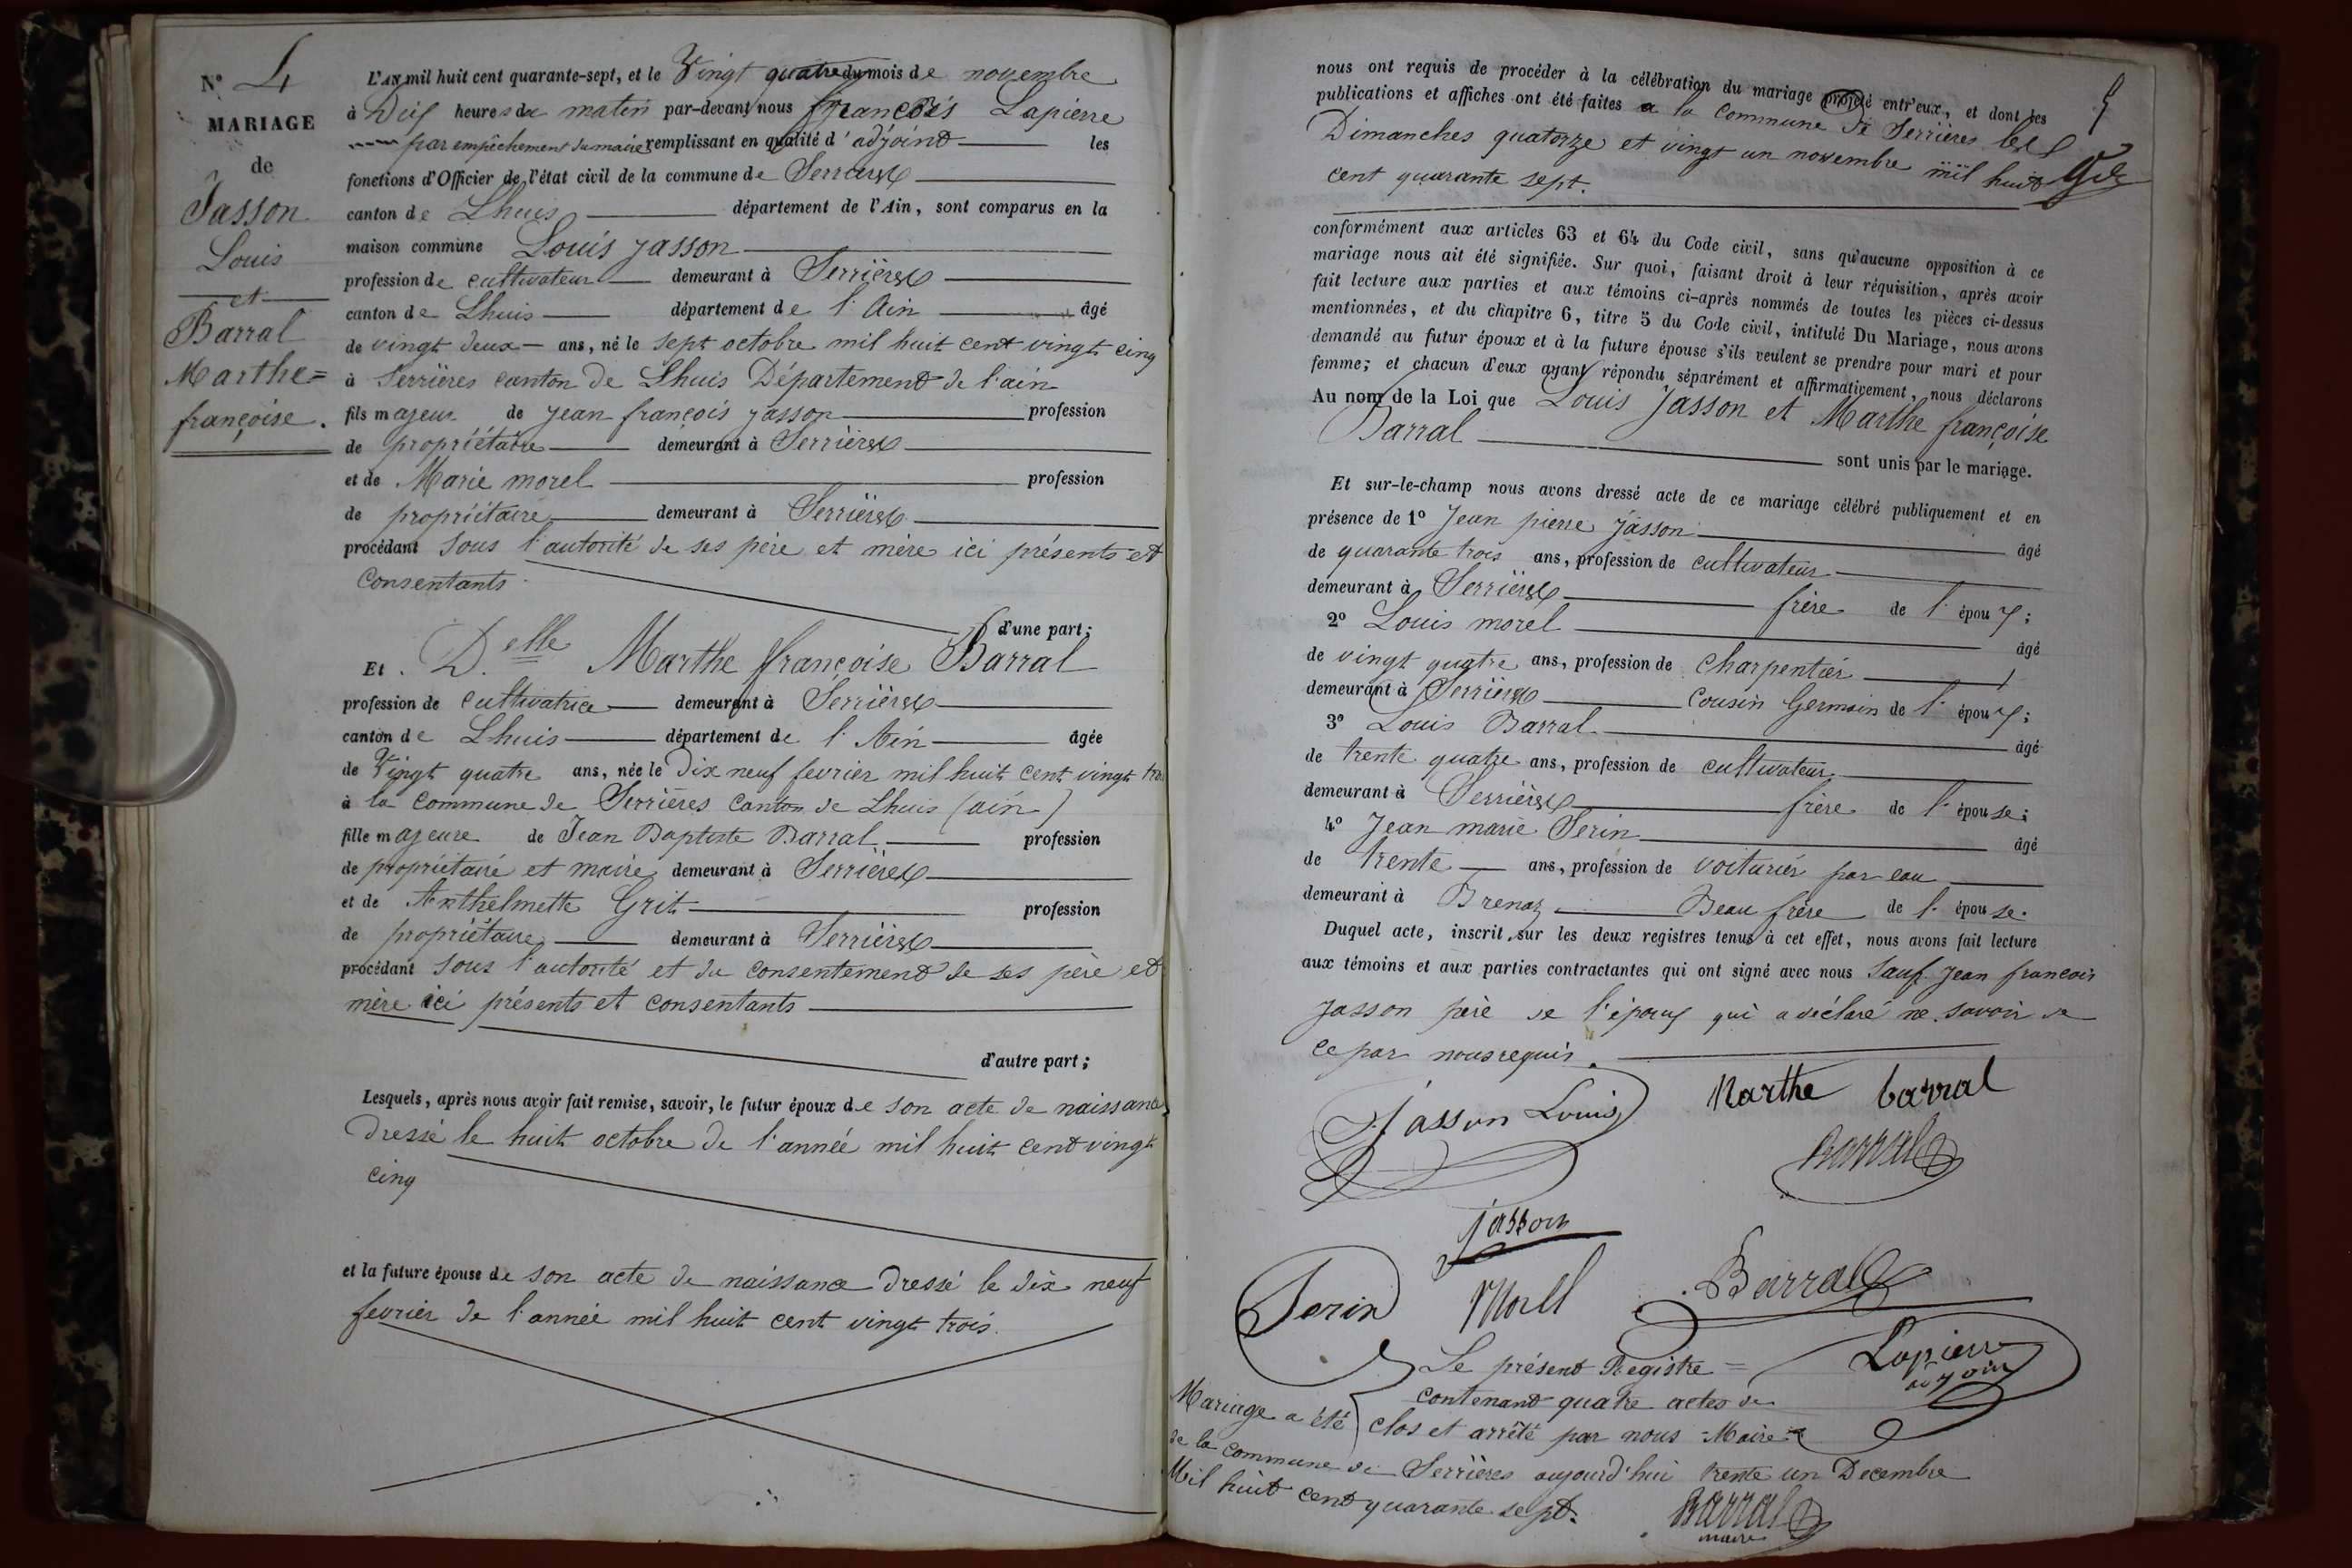 N° 4
MARIAGE
de
Jasson
Louis
et
Barral
Marthe=
françoise.
L'AN mil huit cent quarante-sept, et le Vingt quatre du mois de novembre
à Dix heures du matin par-devant nous françois Lapierre
par empêchement du maire remplissant en qualité d'adjoint les
fonctions d'Officier de l'état civil de la commune de Serrières
canton de Lhuis département de l'Ain, sont comparus en la
maison commune Louis jasson
profession de cultivateur demeurant à Serrières
canton de Lhuis département de l'Ain âgé
de vingt deux ans, né le sept octobre mil huit cent vingt cinq
à Serrières canton de Lhuis Département de l'ain
fils majeur de jean françois jasson profession
de propriétaire demeurant à Serrières
et de Marie morel profession
de propriétaire demeurant à Serrières
procédant sous l'autorité de ses père et mère ici présents et
consentants.
d'une part;
Et. D.elle Marthe françoise Barral
profession de cultivatrice demeurant à Serrières
canton de Lhuis département de l'Ain âgée
de Vingt quatre ans, née le Dix neuf fevrier mil huit cent vingt trois
à la commune de Serrières canton de Lhuis (ain)
fille majeure de Jean Baptiste Barral profession
de propriétaire et maire demeurant à Serrières
et de Anthelmette Grit profession
de propriétaire demeurant à Serrières
procédant sous l'autorité et du consentement de ses père et
mère ici présents et consentants
d'autre part;
Lesquels, après nous avoir fait remise, savoir, le futur époux de son acte de naissance
dressé le huit octobre de l'année mil huit cent vingt
cinq
et la future épouse de son acte de naissance dressé le dix neuf
fevrier de l'année mil huit cent vingt trois.
nous ont requis de procéder à la célébration du mariage projeté entr'eux, et dont les
publications et affiches ont été faites a la commune de Serrières les
Dimanches quatorze et vingt un novembre mil huit
cent quarante sept.
conformément aux articles 63 et 64 du Code civil, sans qu'aucune opposition à ce
mariage nous ait été signifiée. Sur quoi, faisant droit à leur réquisition, après avoir
fait lecture aux parties et aux témoins ci-après nommés de toutes les pièces ci-dessus
mentionnées, et du chapitre 6, titre 5 du Code civil, intitulé Du Mariage, nous avons
demandé au futur époux et à la future épouse s'ils veulent se prendre pour mari et pour
femme; et chacun d'eux ayant répondu séparément et affirmativement, nous déclarons
Au nom de la Loi que Louis Jasson et Marthe françoise
Barral sont unis par le mariage.
Et sur-le-champ nous avons dressé acte de ce mariage célébré publiquement et en
présence de 1° Jean pierre jasson âgé
de quarante trois ans, profession de cultivateur
demeurant à Serrières frère de l'époux;
2° Louis morel âgé
de vingt quatre ans, profession de charpentier
demeurant à Serrières cousin Germain de l'époux;
3° Louis Barral âgé
de trente quatre ans, profession de cultivateur
demeurant à Serrières frère de l'épouse;
4° Jean marie Serin âgé
de trente ans, profession de voiturier par eau
demeurant à Brenaz Beau frère de l'épouse.
Duquel acte, inscrit sur les deux registres tenus à cet effet, nous avons fait lecture
aux témoins et aux parties contractantes qui ont signé avec nous Sauf Jean francois
jasson père de l'époux qui a déclaré ne savoir de
ce par nous requis.
Jasson Louis Marthe barral
Barral
jasson
Serin Morel Barral
Lapierre
adjoint
Le présent Registre =
contenant quatre actes de
Mariage a été clos et arrêté par nous Maire
de la commune de Serrières aujourd'hui trente un Decembre
Mil huit cent quarante sept.
Barral
maire